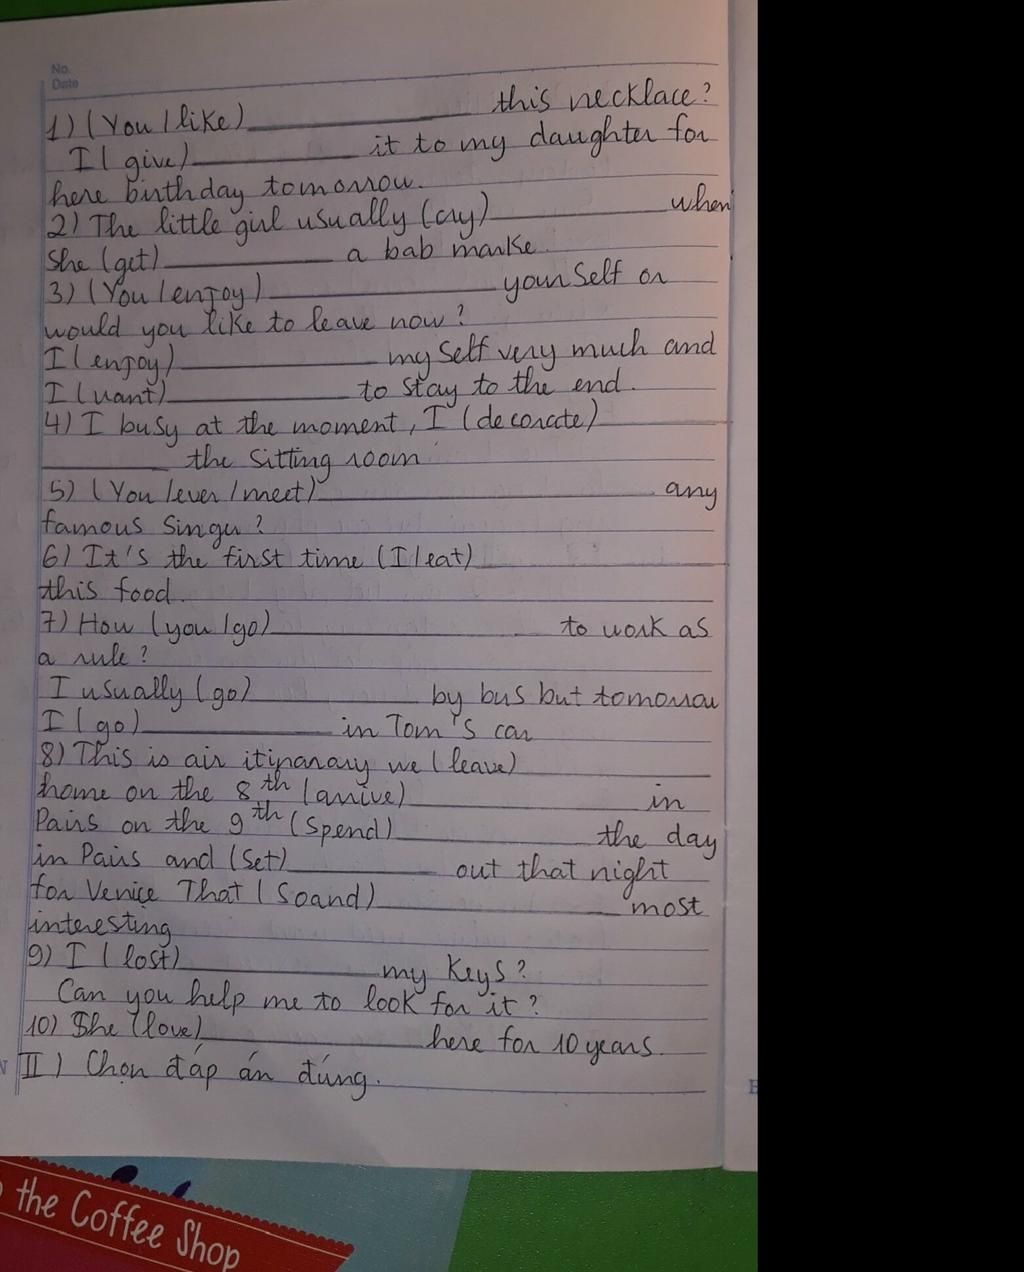 No.
Date
1) (You / like) ____________ this necklace?
I ( give) ____________ it to my daughter for
here birthday tomorrow.
2) The little girl usually (cry) ____________ when
She (get) ____________ a bab marke
3) (You / enjoy) ____________ yourSelf or
would you like to leave now?
I (enjoy) ____________ mySelf very much and
I (want) ____________ to stay to the end.
4) I busy at the moment, I (decorate) ____________
____________ the sitting room
5) (You /ever / meet) ____________ any
famous Singer?
6) It's the first time (I / eat) ____________
this food.
7) How (you / go) ____________ to work as
a rule?
I usually (go) ____________ by bus but tomorrow
I ( go) ____________ in Tom's car
8) This is air itinarary we (leave) ____________
home on the 8th (arrive) ____________ in
Pairs on the 9th (Spend) ____________ the day
in Pairs and (set) ____________ out that night
for Venice That ( Soand) ____________ most
interesting
9) I ( lost) ____________ my Keys?
Can you help me to look for it?
10) She (love) ____________ here for 10 years.
II) Chọn đáp án đúng.
the Coffee Shop